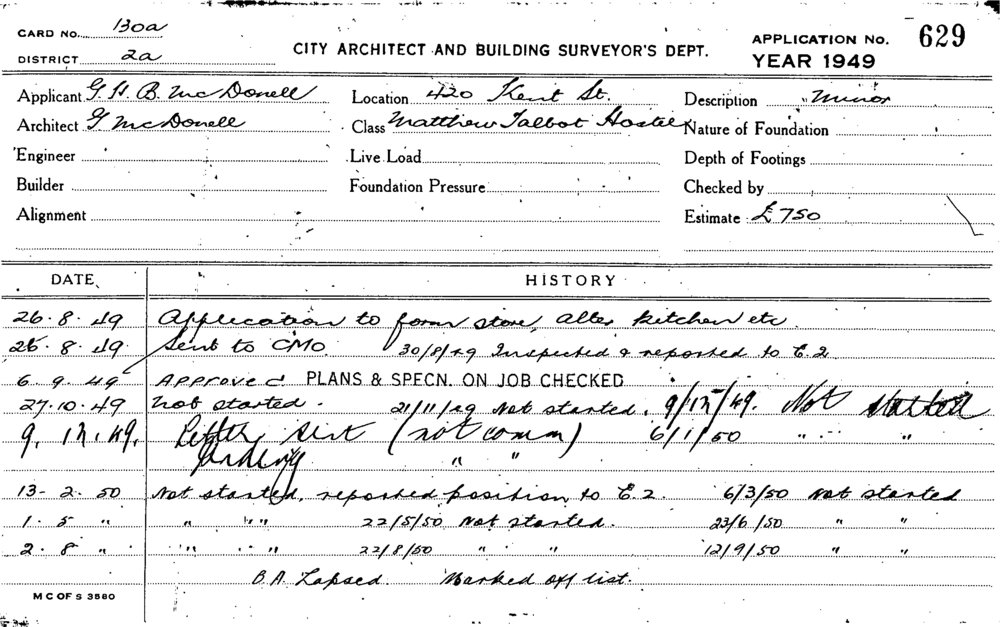 CARD No. 130a
DISTRICT 2a
CITY ARCHITECT AND BUILDING SURVEYOR'S DEPT.
APPLICATION No. 629
YEAR 1949
Applicant G. H. B. McDonell Location 420 Kent St. Description Minor
Architect G McDonell Class Matthew Talbot Hostel Nature of Foundation
Engineer Live Load Depth of Footings
Builder Foundation Pressure Checked by
Alignment Estimate £750
DATE HISTORY
26.8.49 Application to form store, alter kitchen etc
26.8.49 Sent to CMO. 30/8/49 Inspected & reported to E.2
6.9.49 Approved PLANS & SPECN. ON JOB CHECKED
27.10.49 Not started. 21/11/49 Not started. 9/12/49. Not started
9.12.49. Letter sent (not comm) 6/1/50 " "
" "
13-2.50 Not started, reported position to E.2. 6/3/50 Not started
1.5 " " " 22/5/50 Not started. 23/6/50 " "
2.8 " " " 22/8/50 " " 12/9/50 " "
B.A. Lapsed. Marked off list.
M C OF S 3580